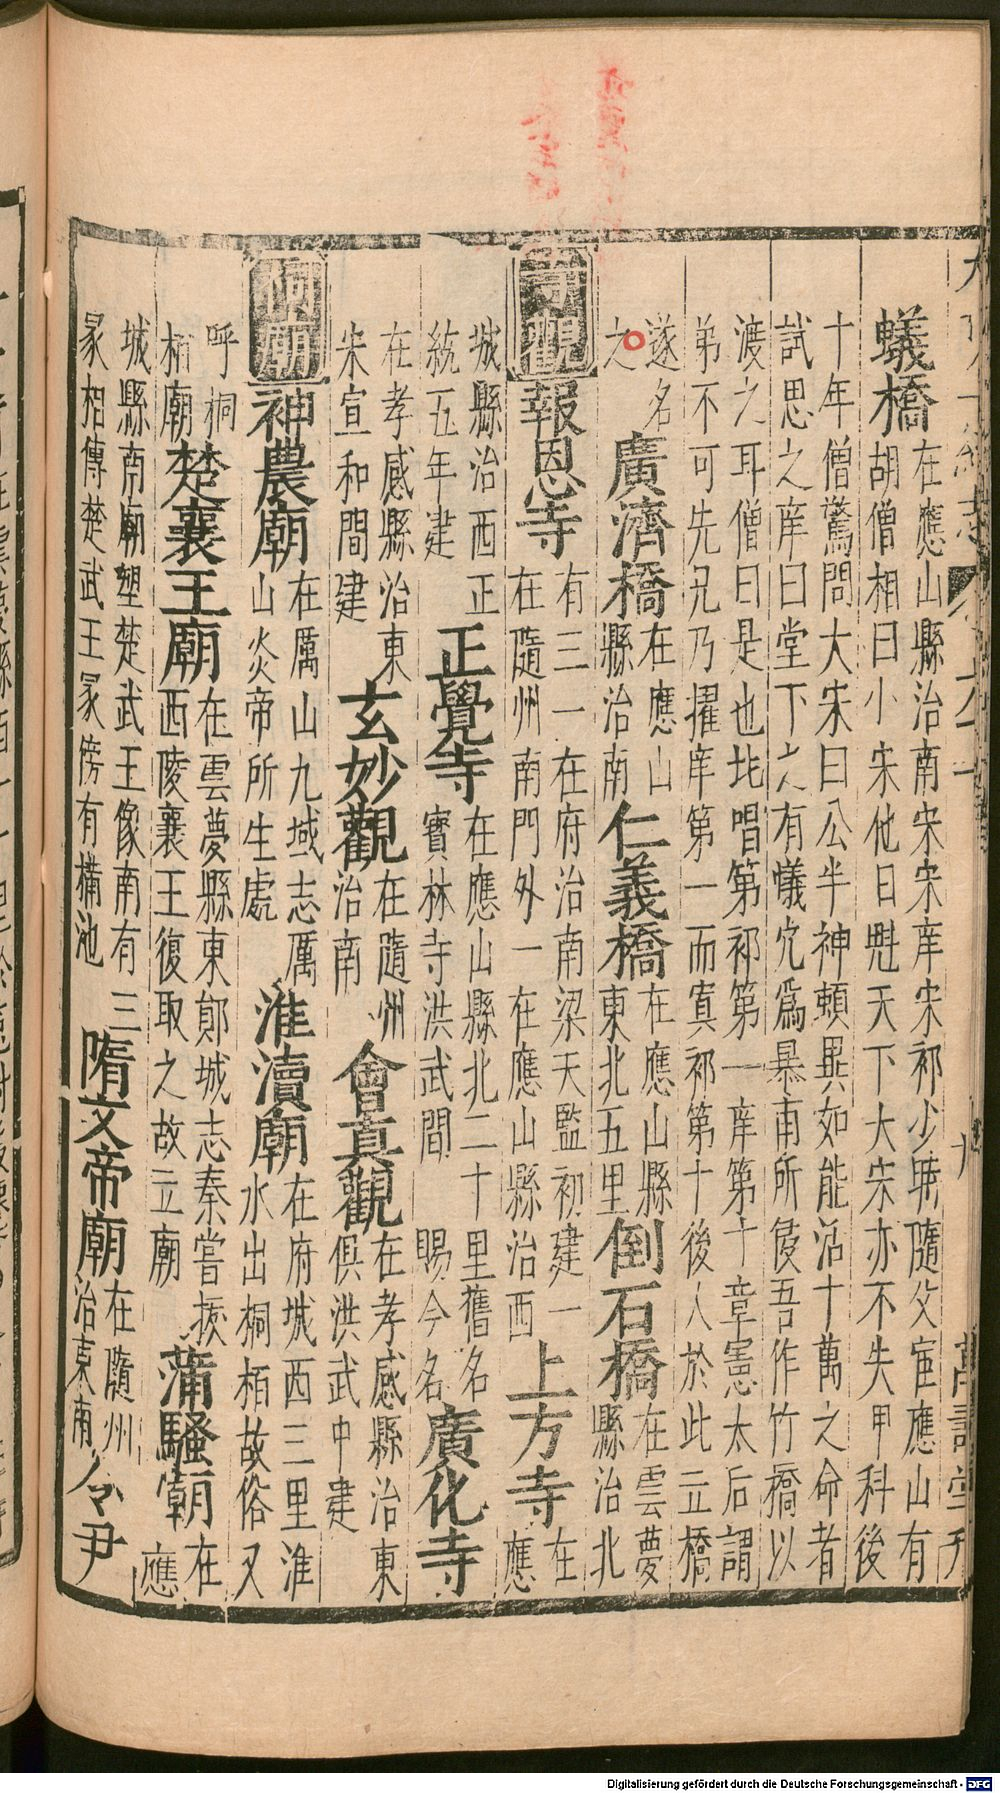 大明一統志 卷六十一 九 萬壽堂刊
蟻橋 在應山縣治南宋宋庠宋祁少時隨父寓應山有
胡僧相曰小宋他日魁天下大宋亦不失甲科後
十年僧驚問大宋曰公半神頓異如能活十萬之命者
試思之庠曰堂下之有蟻穴爲暴雨所侵吾作竹橋以
渡之耳僧曰是也比唱第祁第一庠第十章憲太后謂
弟不可先兄乃擢庠第一而寘祁第十後人於此立橋
遂名
之
廣濟橋 在應山
縣治南
仁義橋 在應山縣
東北五里
倒石橋 在雲夢
縣治北
寺觀
報恩寺 有三一在府治南梁天監初建一
在隨州南門外一在應山縣治西
上方寺 在
應
城縣治西正
統五年建
正覺寺 在應山縣北二十里舊名
寶林寺洪武間賜今名
廣化寺
在孝感縣治東
宋宣和間建
玄妙觀 在隨州
治南
會真觀 在孝感縣治東
俱洪武中建
祠廟
神農廟 在厲山九域志厲
山炎帝所生處
淮瀆廟 在府城西三里淮
水出桐栢故俗又
呼桐
栢廟
楚襄王廟 在雲夢縣東鄖城志秦嘗拔
西陵襄王復取之故立廟
蒲騷廟 在
應
城縣南廟塑楚武王像南有三
冢相傳楚武王冢傍有池
隋文帝廟 在隨州
治東南
令尹
Digitalisierung gefördert durch die Deutsche Forschungsgemeinschaft - DFG